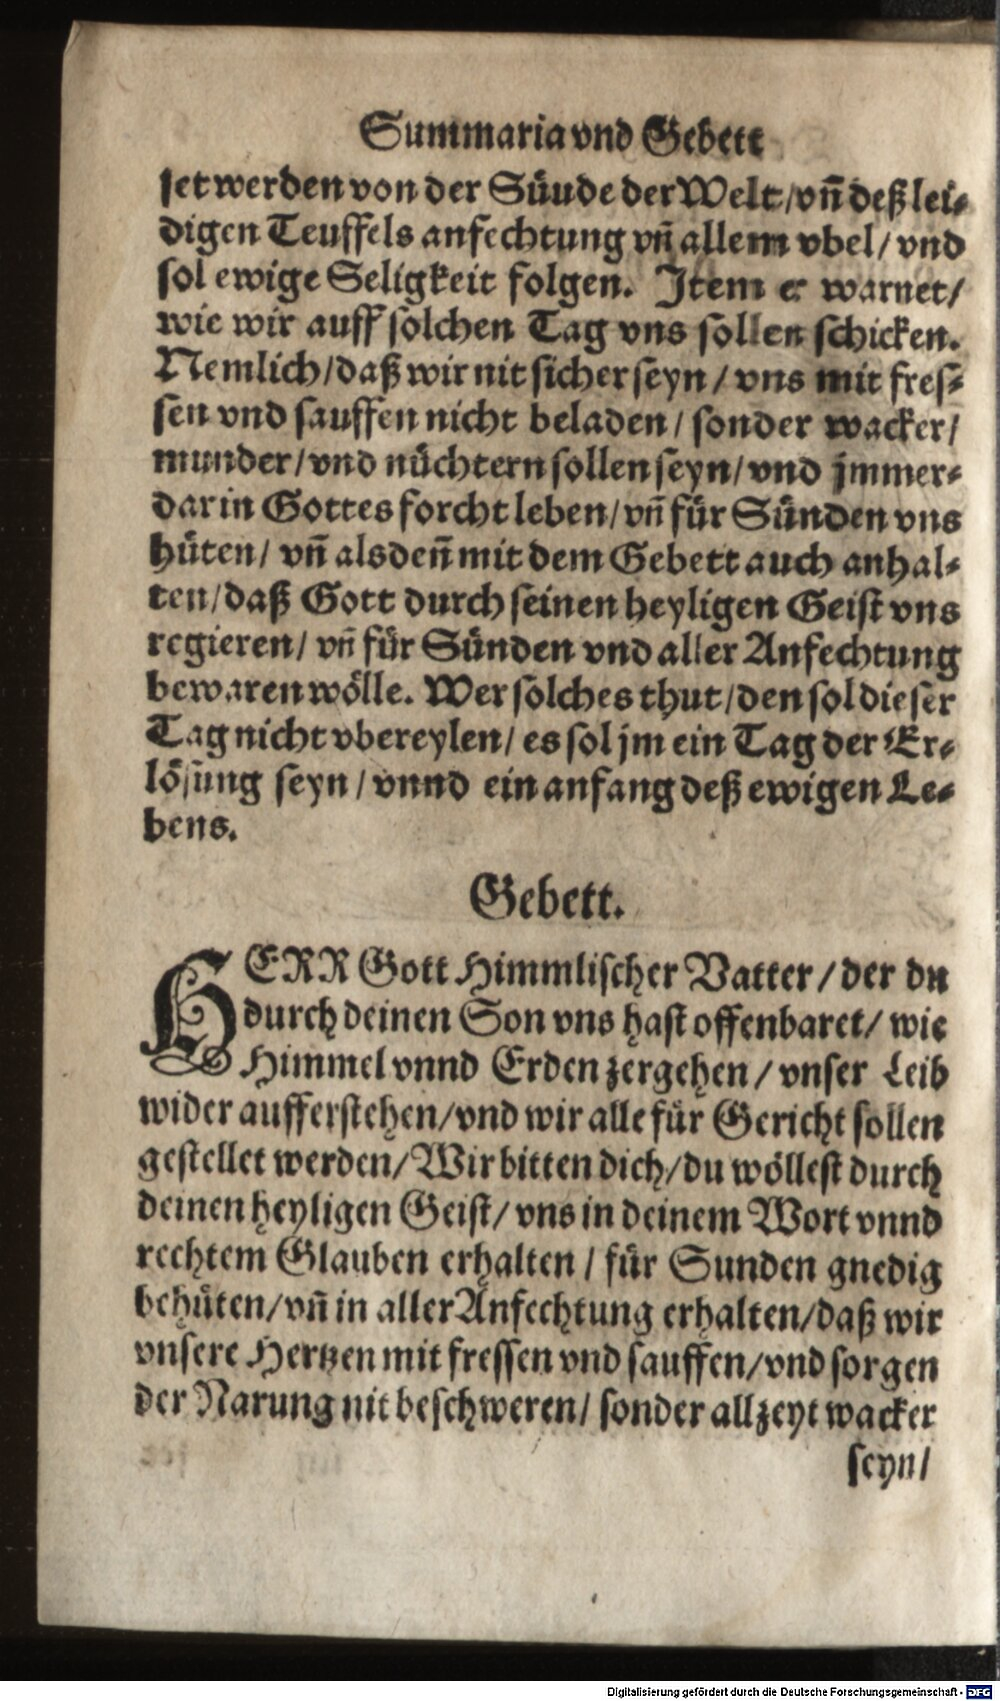 Summaria vnd Gebett
set werden von der Süude der Welt/ vñ deß lei-
digen Teuffels anfechtung vñ allem vbel/ vnd
sol ewige Seligkeit folgen. Item er warnet/
wie wir auff solchen Tag vns sollen schicken.
Nemlich/ daß wir nit sicher seyn/ vns mit fres-
sen vnd sauffen nicht beladen/ sonder wacker/
munder/ vnd nüchtern sollen seyn/ vnd jmmer-
dar in Gottes forcht leben/ vñ für Sünden vns
hüten/ vñ alsdeñ mit dem Gebett auch anhal-
ten/ daß Gott durch seinen heyligen Geist vns
regieren/ vñ für Sünden vnd aller Anfechtung
bewaren wölle. Wer solches thut/ den sol dieser
Tag nicht vbereylen/ es sol jm ein Tag der Er-
lösung seyn/ vnnd ein anfang deß ewigen Le-
bens.
Gebett.
HERR Gott Himmlischer Vatter/ der du
durch deinen Son vns hast offenbaret/ wie
Himmel vnnd Erden zergehen/ vnser Leib
wider aufferstehen/ vnd wir alle für Gericht sollen
gestellet werden/ Wir bitten dich/ du wöllest durch
deinen heyligen Geist/ vns in deinem Wort vnnd
rechtem Glauben erhalten/ für Sunden gnedig
behüten/ vñ in aller Anfechtung erhalten/ daß wir
vnsere Hertzen mit fressen vnd sauffen/ vnd sorgen
der Narung nit beschweren/ sonder allzeyt wacker
seyn/
Digitalisierung gefördert durch die Deutsche Forschungsgemeinschaft - DFG